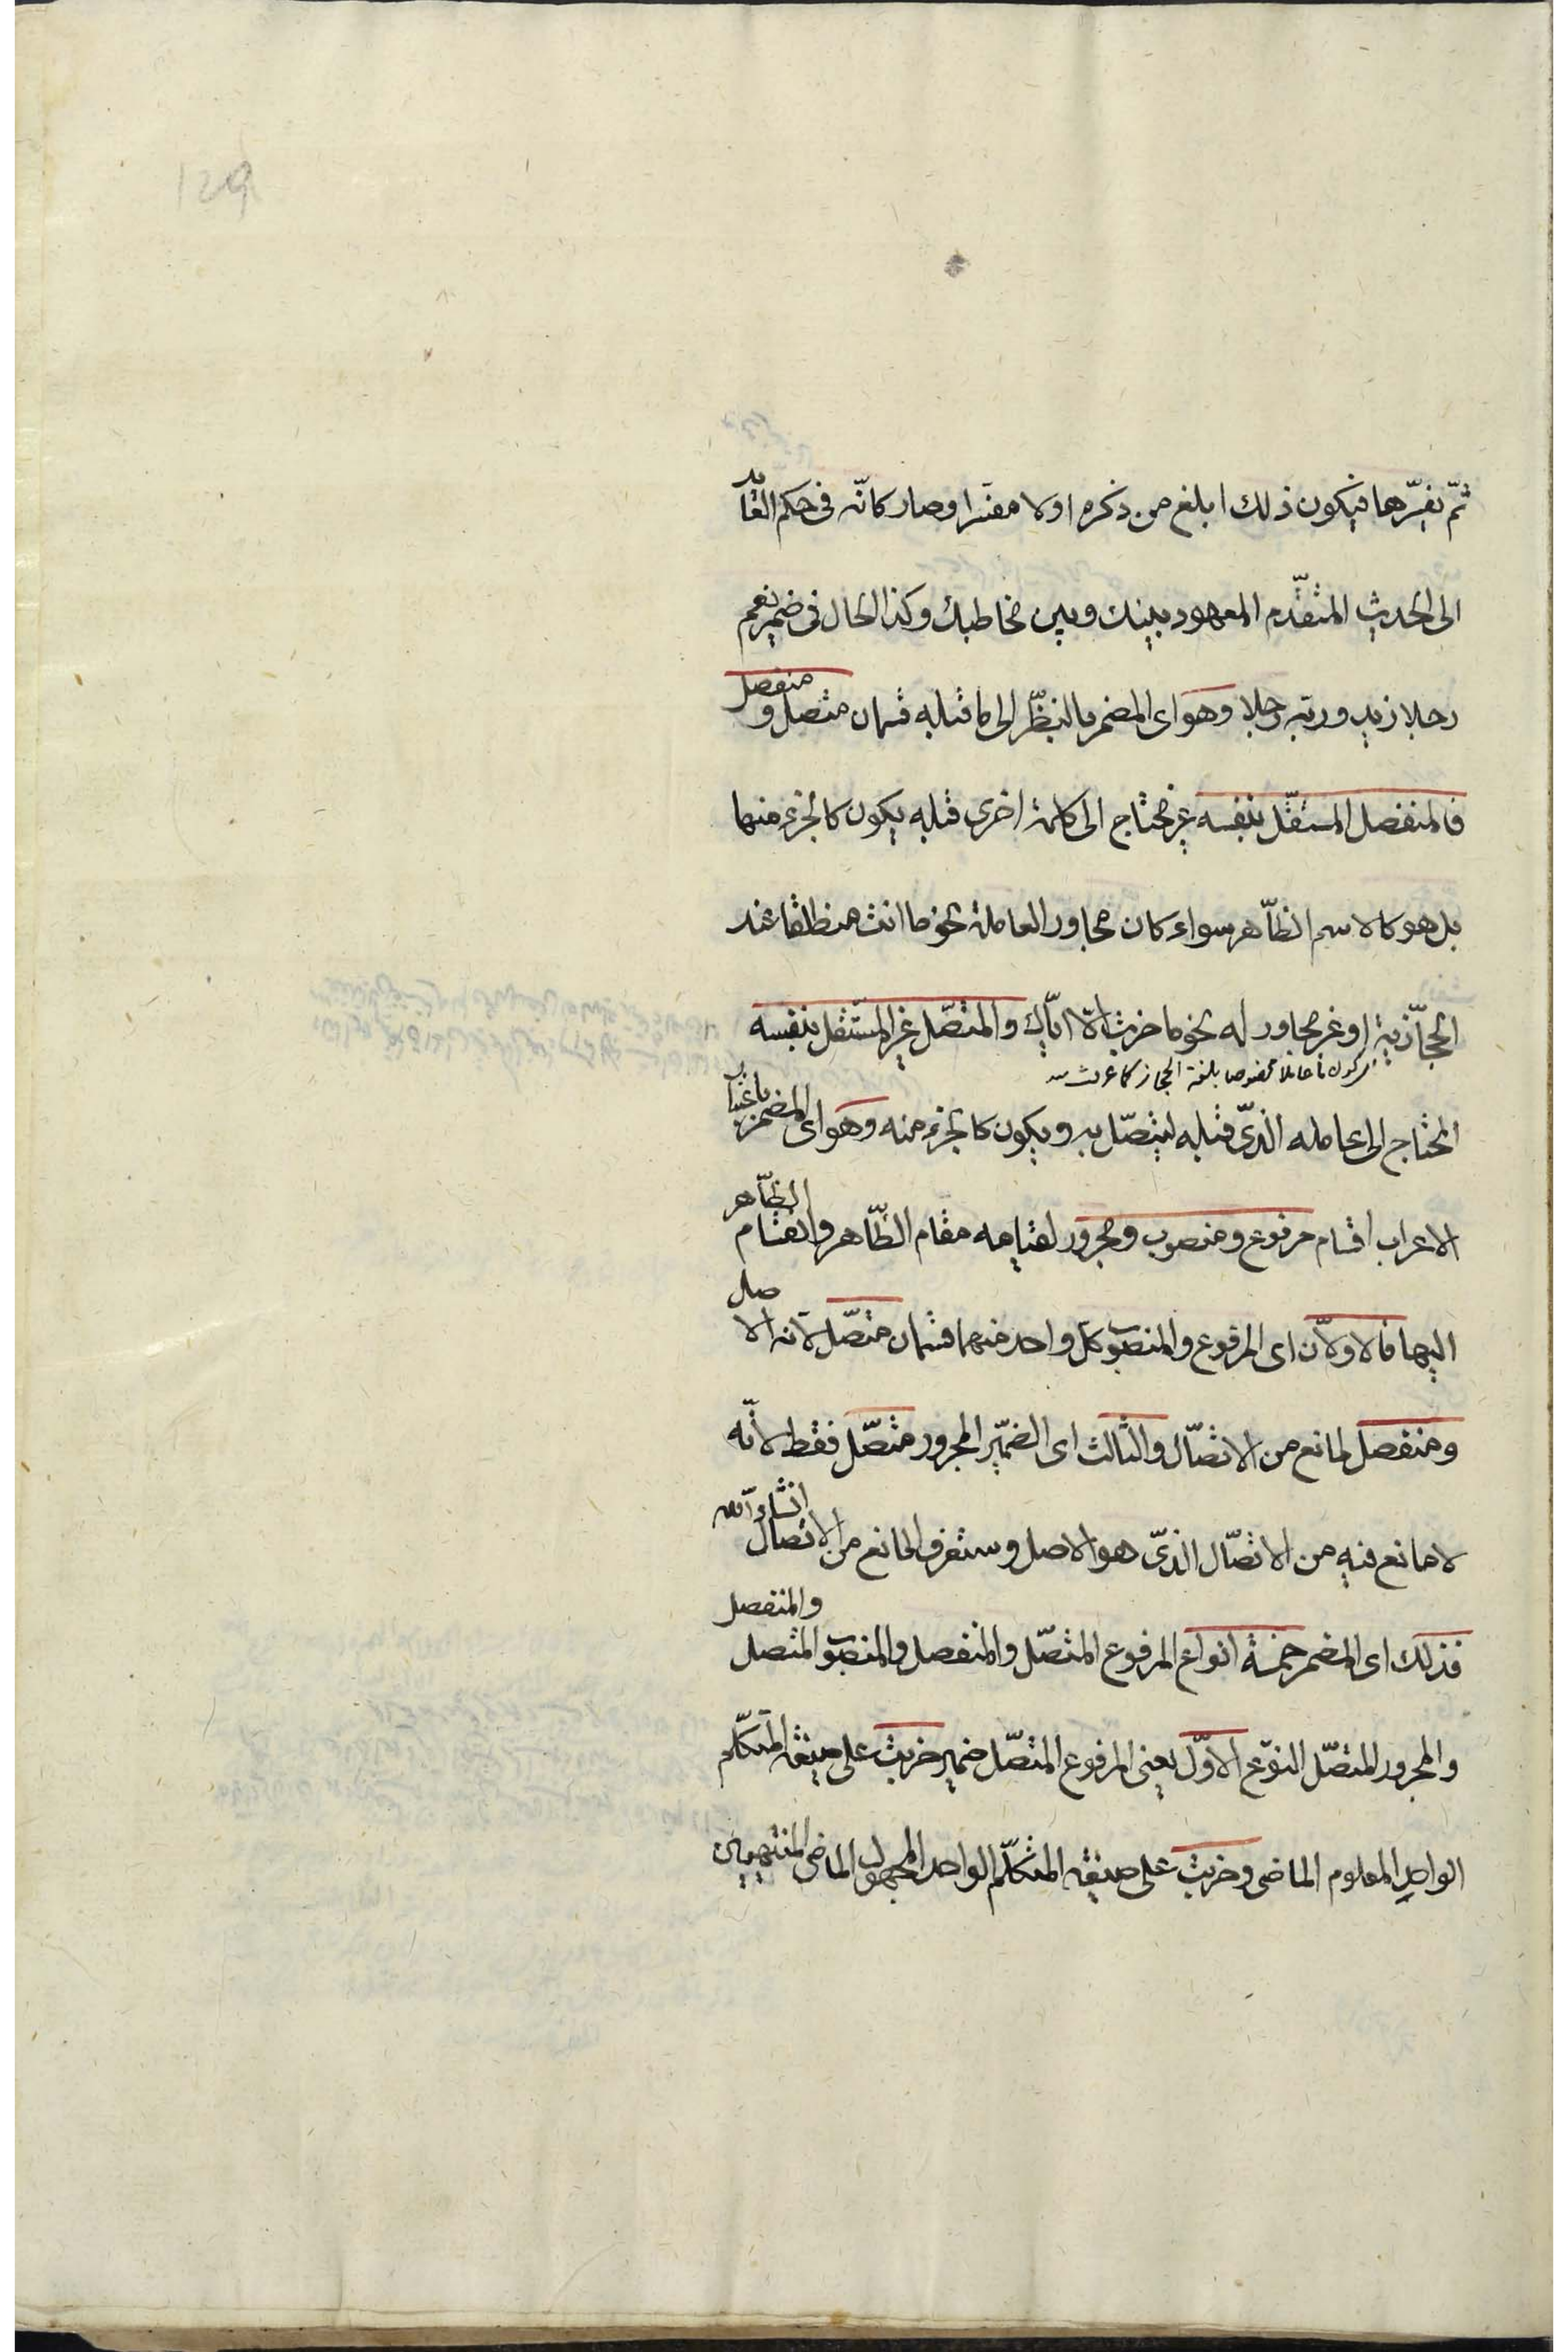 129
ثمّ يفسّرها فيكون ذلك ابلغ من ذكره اولا مفسّرا وصار كانّه فى حكم العائد
الى الحديث المتقدّم المعهود بينك وبين مخاطبك وكذا الحال فى ضمير نعم
رجلا زيد وربّه رجلا وهو اى المضمر بالنظّر الى ما قبله قسمان متّصل و منفصل
فالمنفصل المستقلّ بنفسه غير محتاج الى كلمة اخرى قبله يكون كالجزء منها
بل هو كالاسم الظّاهر سواء كان مجاور العامله نحو ما انت منطلقا عند
الحجازّية او غير مجاور له نحو ما ضربت الّا ايّاك والمتّصل غير المستّقل بنفسه
مخصوصا بلغة الحجاز كما عرفت
المحتاج الى عامله الذّى قبله ليتّصل به ويكون كالجزء منه وهو اى المضمر باعتبار
الاعراب اقسام مرفوع ومنصوب ومجرور لقيامه مقام الظّاهر وانقسام الظّاهر
اليها فالاولّان اى المرفوع والمنصوب كلّ واحد منهما قسمان متّصل لانّه الاصل
ومنفصل لمانع من الاتّصال والثالث اى الضميّر المجرور متّصل فقط لانّه
لا مانع فيه من الاتّصال الذّى هو الاصل وستعرف المانع من الاتّصال انشاء الله
فذلك اى المضمر خمسة انواع المرفوع المتّصل والمنفصل والمنصوب المتصل والمنفصل
والمجرور المتّصل النوّع الاوّل يعنى المرفوع المتّصل ضمير ضربت على صيغة المتكلّم
الواحد المعلوم الماضى وضربت على صيغة المتكلّم الواحد المجهول الماضى المنتهيين